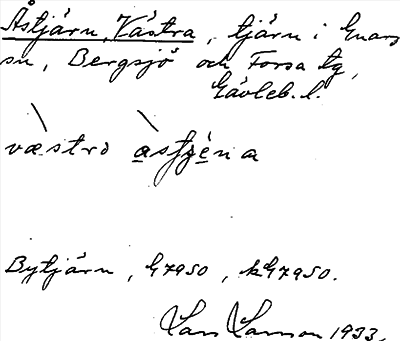 Åstjärn, Västra, tjärn i Enångers
sn, Bergsjö och Forsa tg,
Gävleb. l.
væstrɔ asfjèna
Bytjärn, G7950, kG7950.
Lars Larsson 1933.